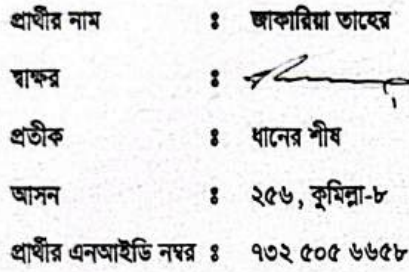 প্রার্থীর নাম : জাকারিয়া তাহের
স্বাক্ষর :
প্রতীক : ধানের শীষ
আসন : ২৫৬, কুমিল্লা-৮
প্রার্থীর এনআইডি নম্বর : ৭৩২ ৫০৫ ৬৬৫৮